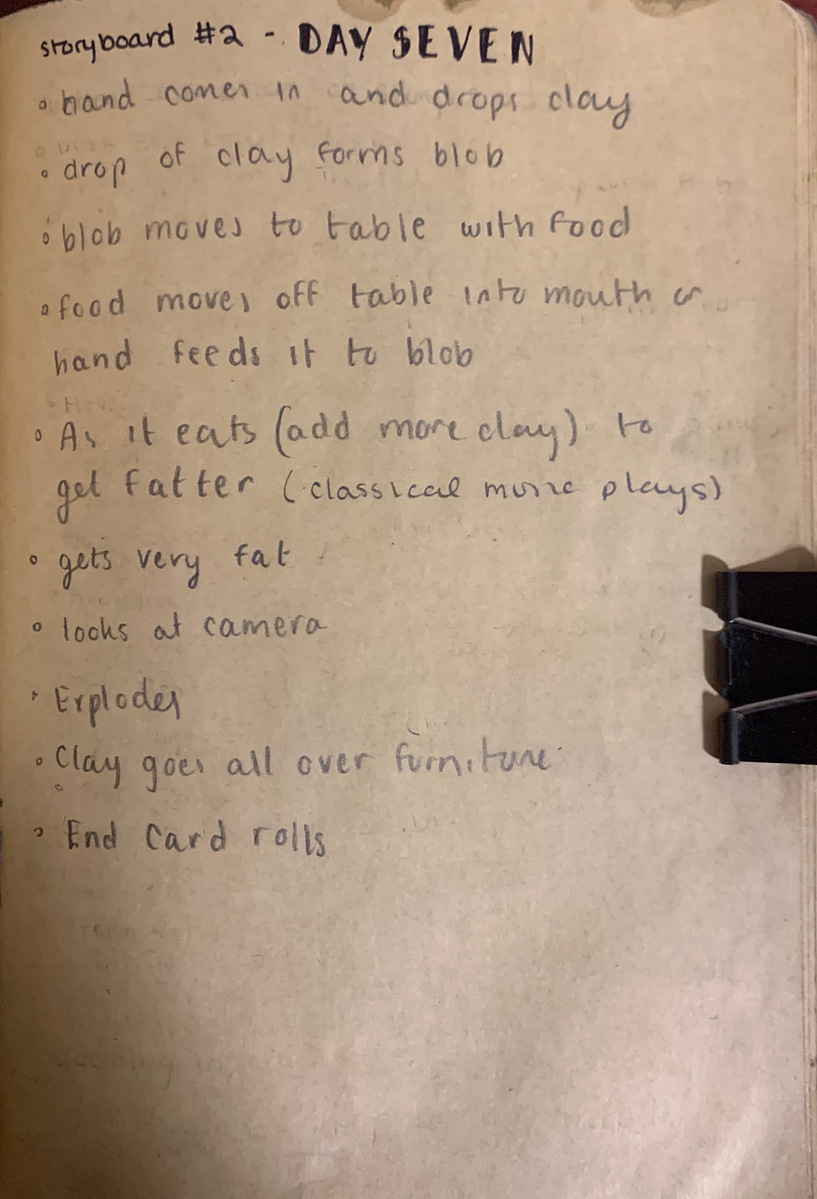 storyboard #2 - DAY SEVEN
• hand comes in and drops clay
• drop of clay forms blob
• blob moves to table with food
• food moves off table into mouth or
hand feeds it to blob
• As it eats (add more clay) to
get fatter (classical music plays)
• gets very fat
• looks at camera
• Explodes
• Clay goes all over furniture
• End Card rolls